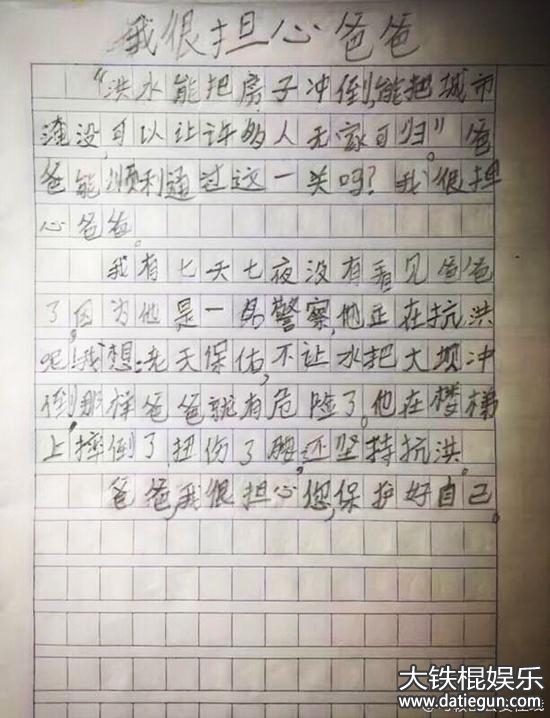 我很担心爸爸
“洪水能把房子冲倒,能把城市
淹没,可以让许多人无家可归”。爸
爸能顺利通过这一关吗？我很担
心爸爸。
我有七天七夜没有看见爸爸
了,因为他是一名警察,他正在抗洪
呢!我想:老天保佑,不让水把大坝冲
倒,那样爸爸就有危险了。他在楼梯
上摔倒了,扭伤了腰,还坚持抗洪。
爸爸,我很担心您,保护好自己。
大铁棍娱乐
www.datiegun.com